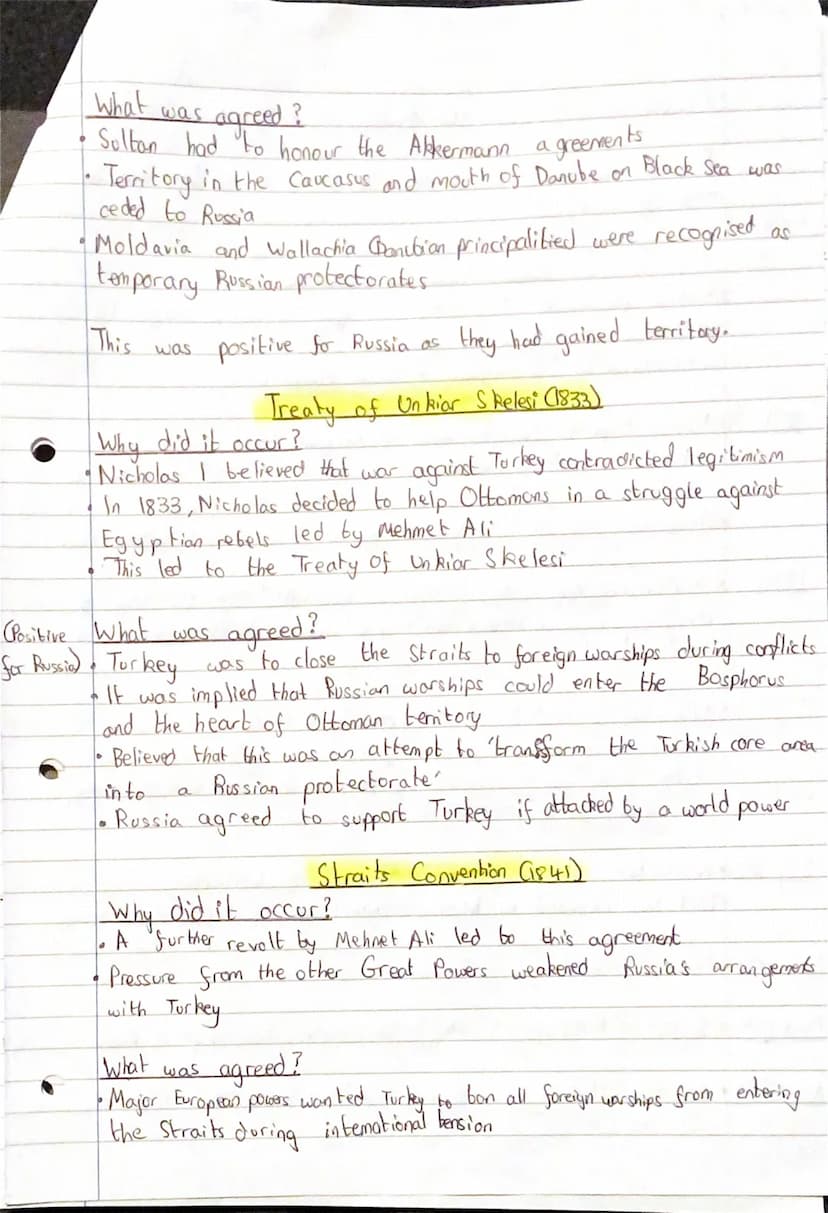 What was agreed?
• Sultan had to honour the Akkermann agreements
• Territory in the Caucasus and mouth of Danube on Black Sea was
ceded to Russia
• Moldavia and Wallachia (Danubian principalitied were recognised as
temporary Russian protectorates
This was positive for Russia as they had gained territory.
Treaty of Unkiar Skelesi (1833)
Why did it occur?
• Nicholas I believed that war against Turkey contradicted legitimism
• In 1833, Nicholas decided to help Ottomans in a struggle against
Egyptian rebels led by Mehmet Ali
• This led to the Treaty of Unkiar Skelesi
(Positive
for Russia)
What was agreed?
• Turkey was to close the Straits to foreign warships during conflicts
• It was implied that Russian warships could enter the Bosphorus
and the heart of Ottoman territory
• Believed that this was an attempt to 'transform the Turkish core area
into a Russian protectorate'
• Russia agreed to support Turkey if attacked by a world power
Straits Convention (1841)
Why did it occur?
• A further revolt by Mehmet Ali led to this agreement
• Pressure from the other Great Powers weakened Russia's arrangements
with Turkey
What was agreed?
• Major European powers wanted Turkey to ban all foreign warships from entering
the Straits during international tension